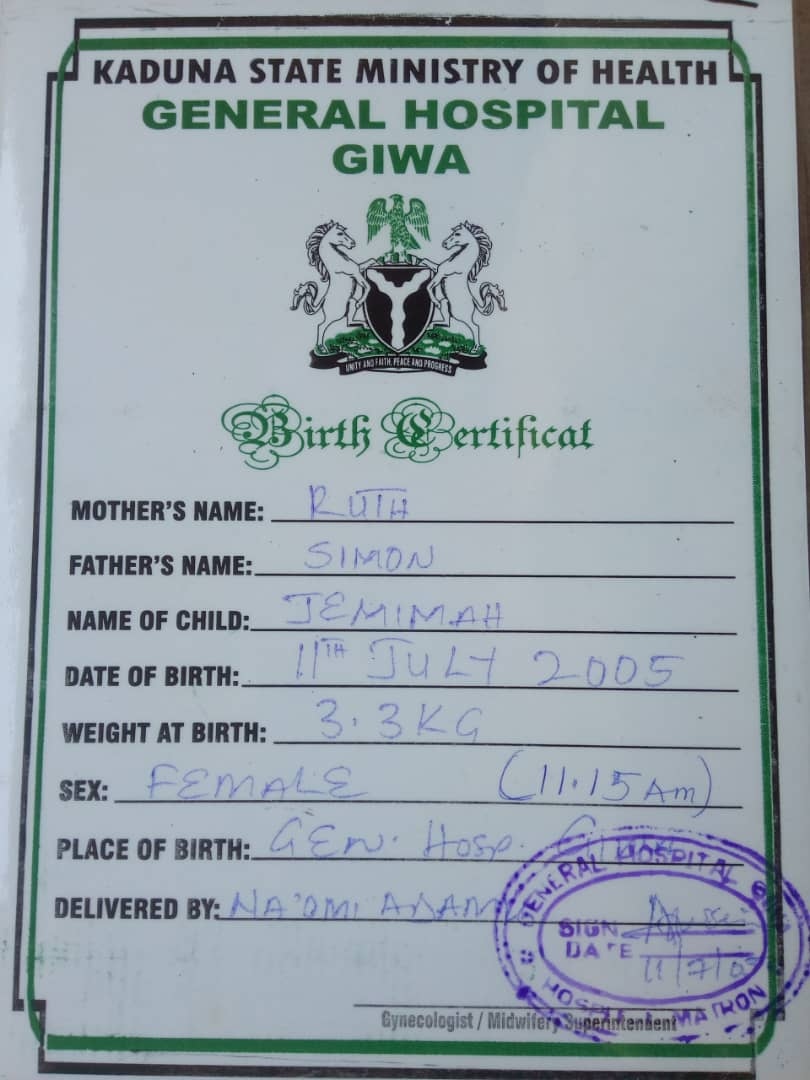 KADUNA STATE MINISTRY OF HEALTH
GENERAL HOSPITAL
GIWA
UNITY AND FAITH, PEACE AND PROGRESS
Birth Certificat
MOTHER'S NAME: RUTH
FATHER'S NAME: SIMON
NAME OF CHILD: JEMIMAH
DATE OF BIRTH: 11TH JULY 2005
WEIGHT AT BIRTH: 3.3KG
SEX: FEMALE (11.15 Am)
PLACE OF BIRTH: GEN. HOSP. GIWA
DELIVERED BY: NA'OMI ADAM
GENERAL HOSPITAL
SIGN
DATE 11/7/05
MATRON
Gynecologist / Midwifery Superintendent